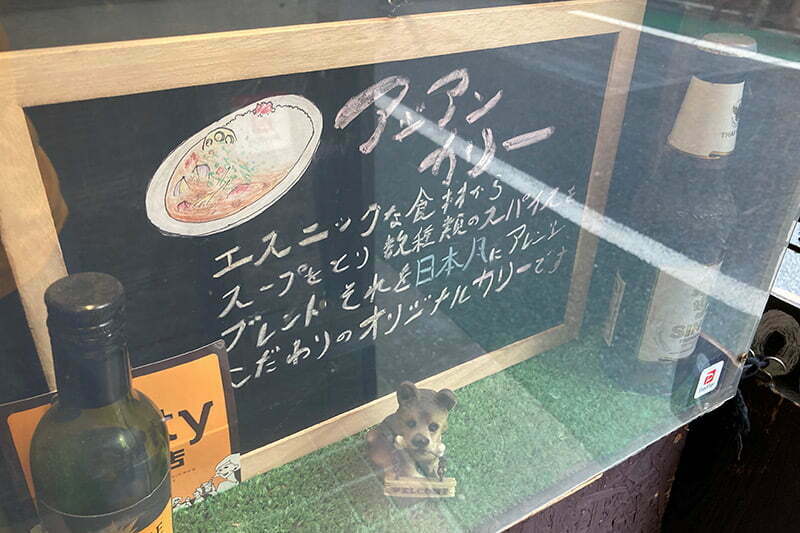 アジアン
カリー
エスニックな食材から
スープをとり 数種類のスパイスを
ブレンド それを日本人にアレンジ
こだわりのオリジナルカリーです
ty
店
WELCOME
THA